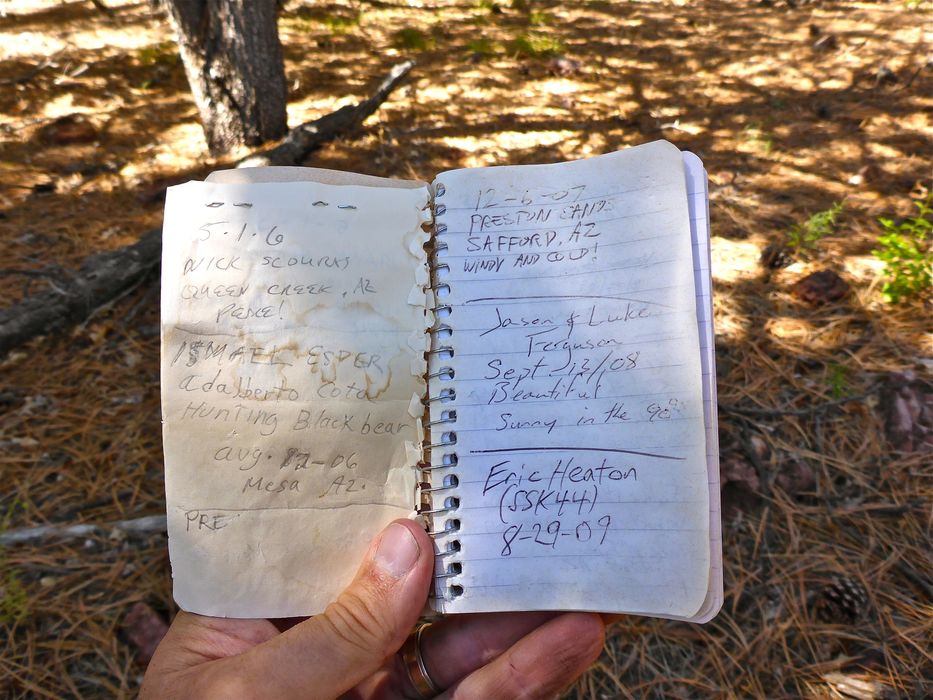 5.1.6
NICK SCOURAS
QUEEN CREEK, AZ
PEACE!
ISMAEL ESPER
adalberto Cota
Hunting Black bear
aug. 12-06
Mesa Az.
PRE
12-6-07
PRESTON
SAFFORD, AZ
WINDY AND COLD!
Jason & Luke
Ferguson
Sept. 13/08
Beautiful
Sunny in the 90's
Eric Heaton
(SSK44)
8-29-09